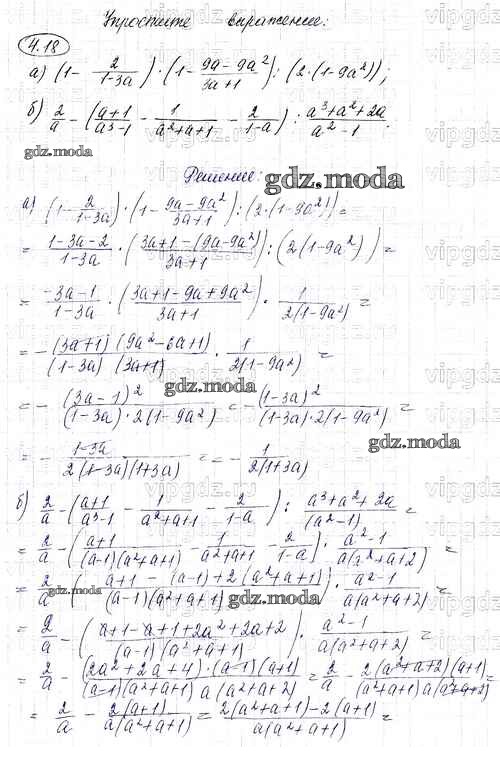 Упростите выражение:
4.18
а) (1 - 2/(1-3a)) · (1 - (9a-9a²)/(3a+1)) : (2·(1-9a²));
б) 2/a - ((a+1)/(a³-1) - 1/(a²+a+1) - 2/(1-a)) : (a³+a²+2a)/(a²-1).
gdz.moda
Решение:
gdz.moda
а) (1 - 2/(1-3a)) · (1 - (9a-9a²)/(3a+1)) : (2·(1-9a²)) =
= (1-3a-2)/(1-3a) · ((3a+1-(9a-9a²))/(3a+1)) : (2(1-9a²)) =
= (-3a-1)/(1-3a) · ((3a+1-9a+9a²)/(3a+1)) · 1/(2(1-9a²)) =
= - ((3a+1)(9a²-6a+1))/((1-3a)(3a+1)) · 1/(2(1-9a²)) =
gdz.moda
= - (3a-1)²/((1-3a)·2(1-9a²)) = - (1-3a)²/((1-3a)·2(1-9a²)) =
gdz.moda
= - (1-3a)/(2(1-3a)(1+3a)) = - 1/(2(1+3a))
б) 2/a - ((a+1)/(a³-1) - 1/(a²+a+1) - 2/(1-a)) : (a³+a²+2a)/(a²-1) =
gdz.moda
= 2/a - ((a+1)/((a-1)(a²+a+1)) - 1/(a²+a+1) - 2/(1-a)) · (a²-1)/(a(a²+a+2)) =
= 2/a - ((a+1-(a-1)+2(a²+a+1))/((a-1)(a²+a+1))) · (a²-1)/(a(a²+a+2)) =
gdz.moda gdz.moda
= 2/a - ((a+1-a+1+2a²+2a+2)/((a-1)(a²+a+1))) · (a²-1)/(a(a²+a+2)) =
= 2/a - ((2a²+2a+4)·(a-1)(a+1))/((a-1)(a²+a+1)a(a²+a+2)) = 2/a - (2(a²+a+2)(a+1))/((a²+a+1)a(a²+a+2)) =
= 2/a - (2(a+1))/(a(a²+a+1)) = (2(a²+a+1)-2(a+1))/(a(a²+a+1)) =